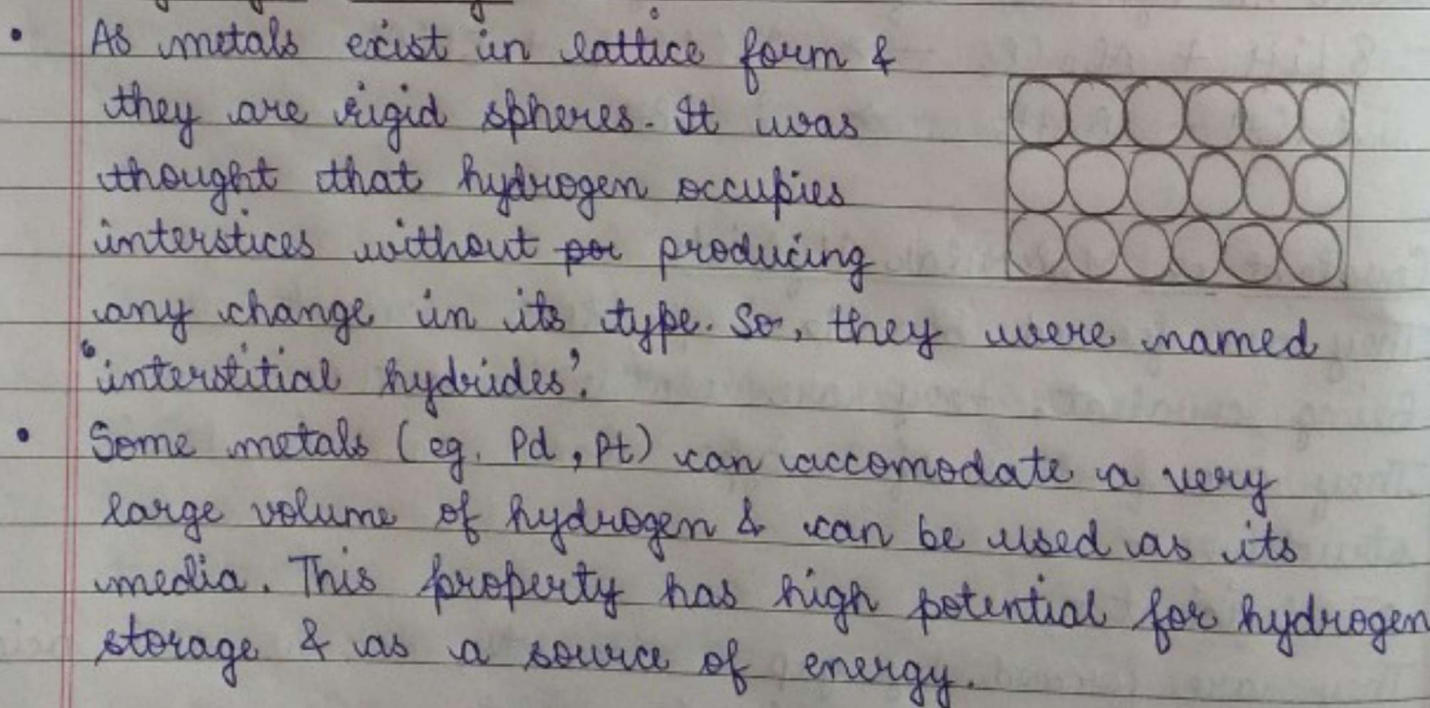 • As metals exist in lattice form &
they are rigid spheres. It was
thought that hydrogen occupies
interstices without por producing
any change in its type. So, they were named
'interstitial hydrides'.
• Some metals (eg. Pd, Pt) can accomodate a very
large volume of hydrogen & can be used as its
media. This property has high potential for hydrogen
storage & as a source of energy.